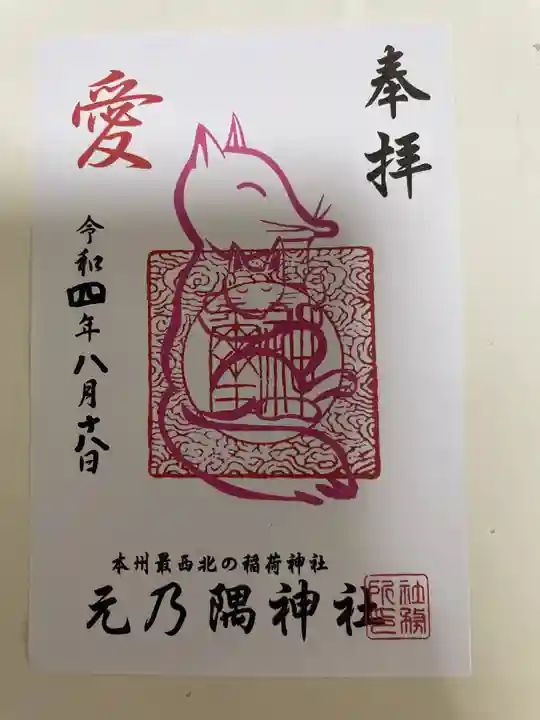 奉拝
愛
令和四年八月十八日
本州最西北の稲荷神社
元乃隅神社
社務所印